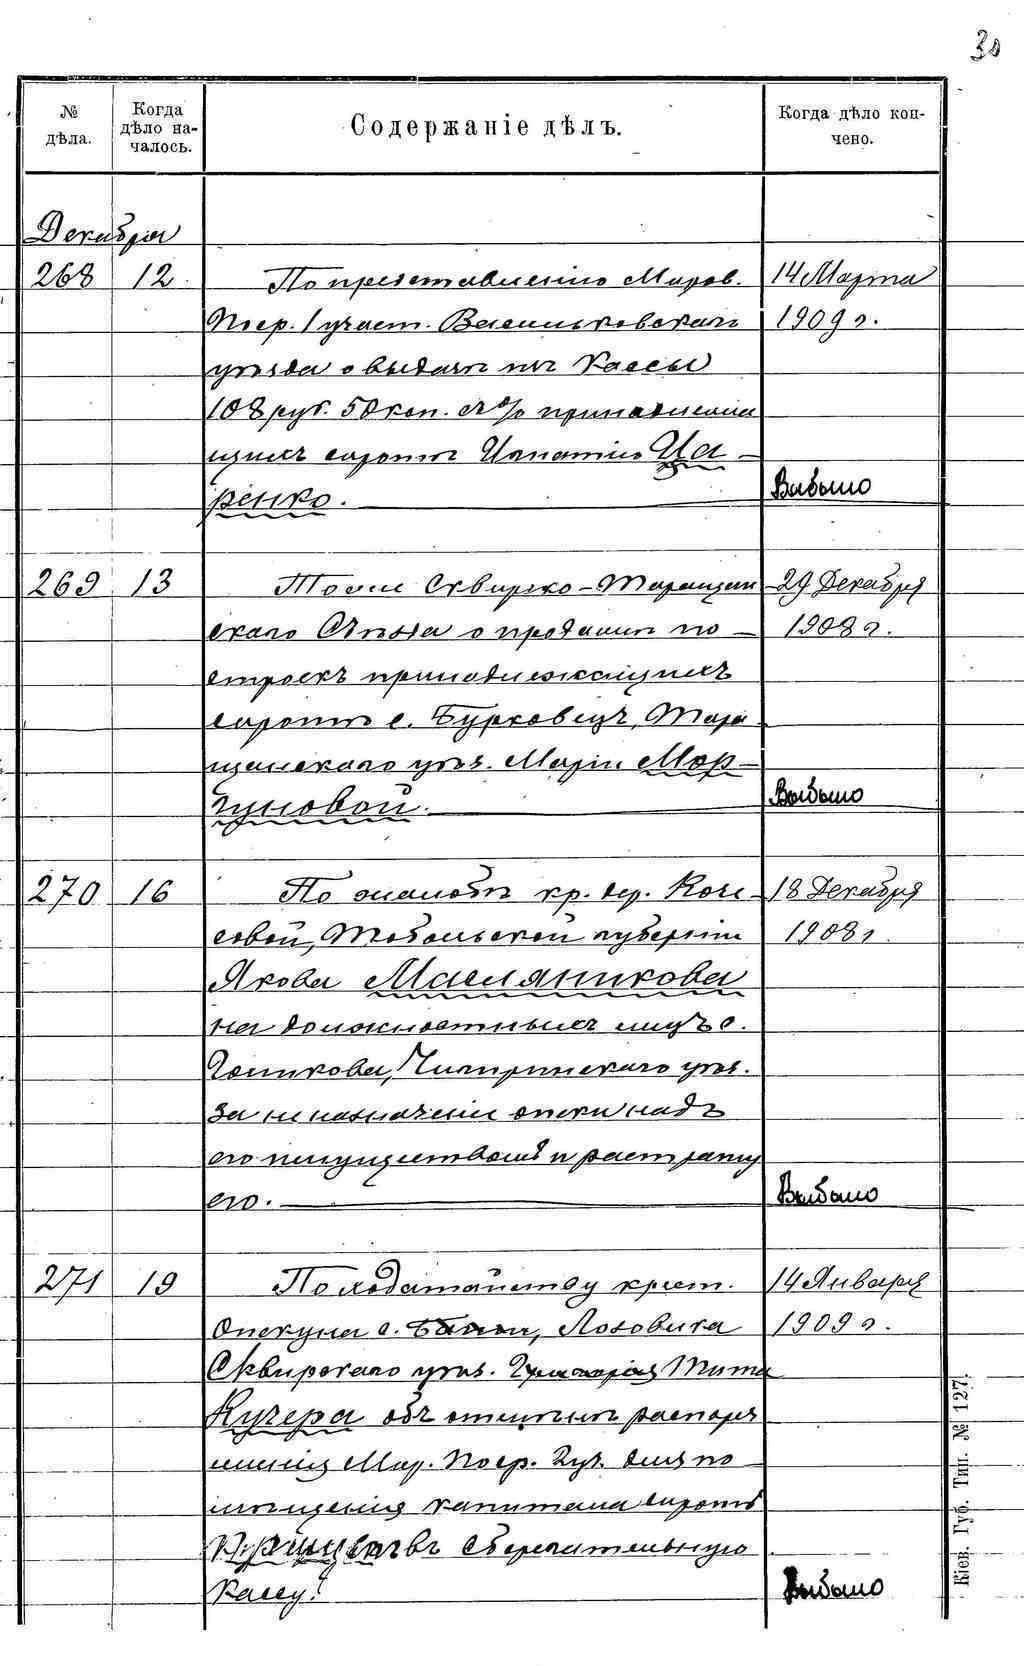 30
№ дѣла.
Когда дѣло на-чалось.
Содержаніе дѣлъ.
Когда дѣло кон-чено.
Декабря
268 12. По представленію Миров. 14 Марта
Поср. 1 участ. Васильковскаго 1909 г.
уѣзда о выдачѣ изъ Кассы
108 руб. 50 коп. съ % принадлежа
щихъ сиротѣ Игнатію Ца-
ренко. Выбыло
269 13 Тоже Сквирско-Таращан 29 Декабря
скаго Съѣзда о продажѣ по- 1908 г.
строекъ принадлежащихъ
сиротѣ с. Бурковецъ, Тара
щанскаго уѣз. Маріи Мор-
гуновой. Выбыло
270 16 По жалобѣ кр. дер. 18 Декабря
совой, Тобольской губерніи 1908 г.
Якова Масляникова
на должностныхъ лицъ с.
Чигиринскаго уѣз.
за не назначеніе опеки надъ
его имуществомъ и растрату
его. Выбыло
271 19 По ходатайству крест. 14 Января
Опекуна с. Лозовика 1909 г.
Сквирскаго уѣз. Григорія Тита
Кучера объ отмѣнѣ распоря
женія Мир. Поср. 2 уч. для по
мѣщенія капитала сиротъ
въ сберегательную
Кассу. Выбыло
Кіев. Губ. Тип. № 127.